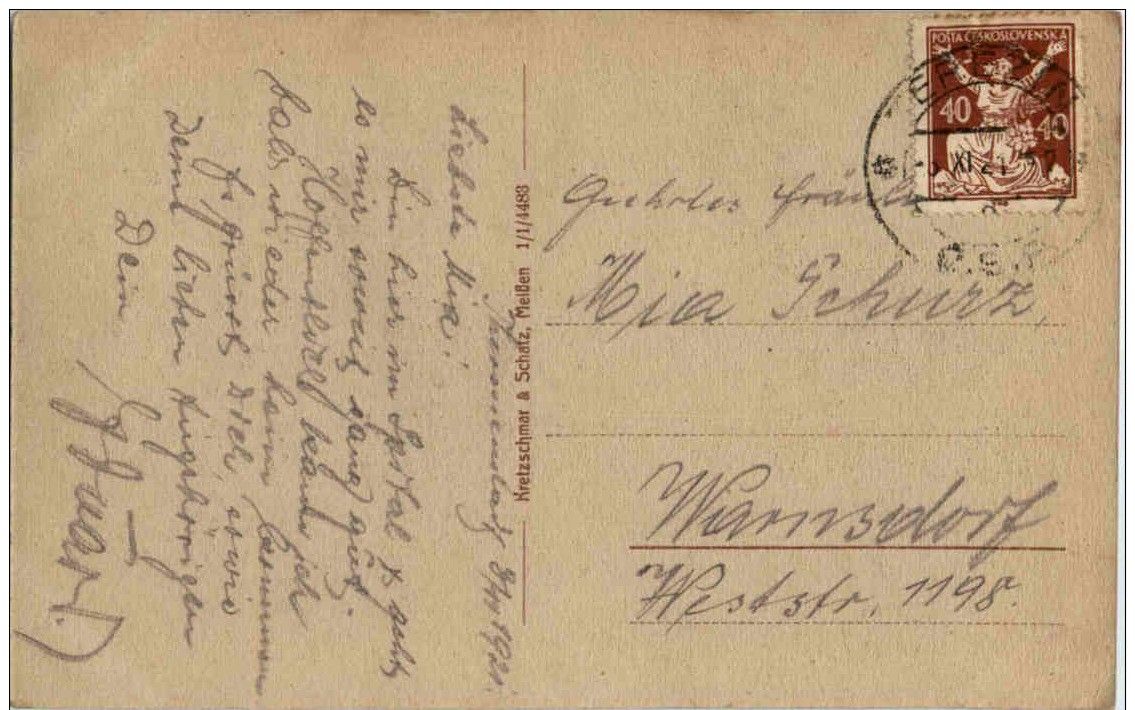 POŠTA ČESKOSLOVENSKÁ
40 40
XI 21
Geehrtes Fräulein
Mia Schurz,
Warnsdorf
Weststr. 1198.
Kretzschmar & Schatz, Meißen 1/1/4483
1921.
Liebste Mia!
Bin hier im Spital es geht
es mir soweit ganz gut.
Hoffentlich kann ich
bald wieder heim kommen
Es grüsst Dich, sowie
Deine lieben Angehörigen
Dein